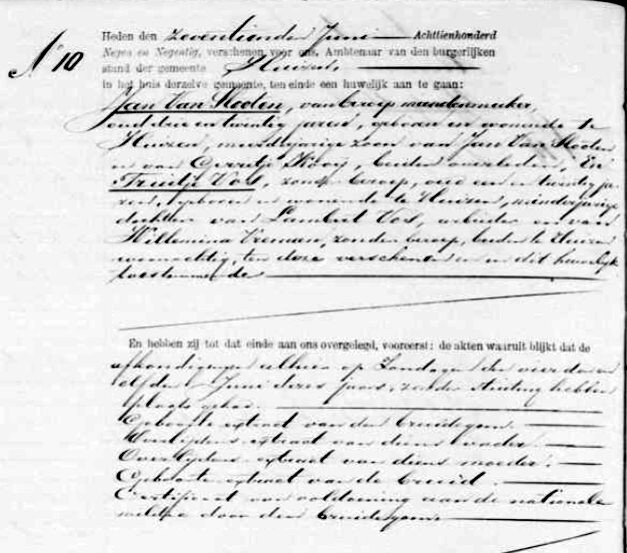 Heden den zeventienden Juni Achttienhonderd
No 10
Negen en Negentig, verschenen voor ons, Ambtenaar van den burgerlijken
stand der gemeente Huizen
in het huis derzelve gemeente, ten einde een huwelijk aan te gaan:
Jan Van Kooten, van beroep mandenmaker,
oud drie en twintig jaren, geboren en wonende te
Huizen, meerderjarige zoon van Jan Van Kooten
en van Evertje Kooij, beiden overleden, En
Truitje Vos, zonder beroep, oud een en twintig ja-
ren, geboren en wonende te Huizen, minderjarige
dochter van Lambert Vos, arbeider en van
Willemina Vreman, zonder beroep, beiden te Huizen
woonachtig, ten deze verschenen en in dit huwelijk
toestemmende
En hebben zij tot dat einde aan ons overgelegd, vooreerst: de akten waaruit blijkt dat de
afkondigingen alhier op Zondagen den vierden en
elfden Juni dezes jaars, zonder stuiting hebben
plaats gehad.
Geboorte extract van den bruidegom.
Overlijdens extract van diens vader.
Overlijdens extract van diens moeder.
Geboorte extract van de bruid.
Certificaat van voldoening aan de nationale
militie door den bruidegom.